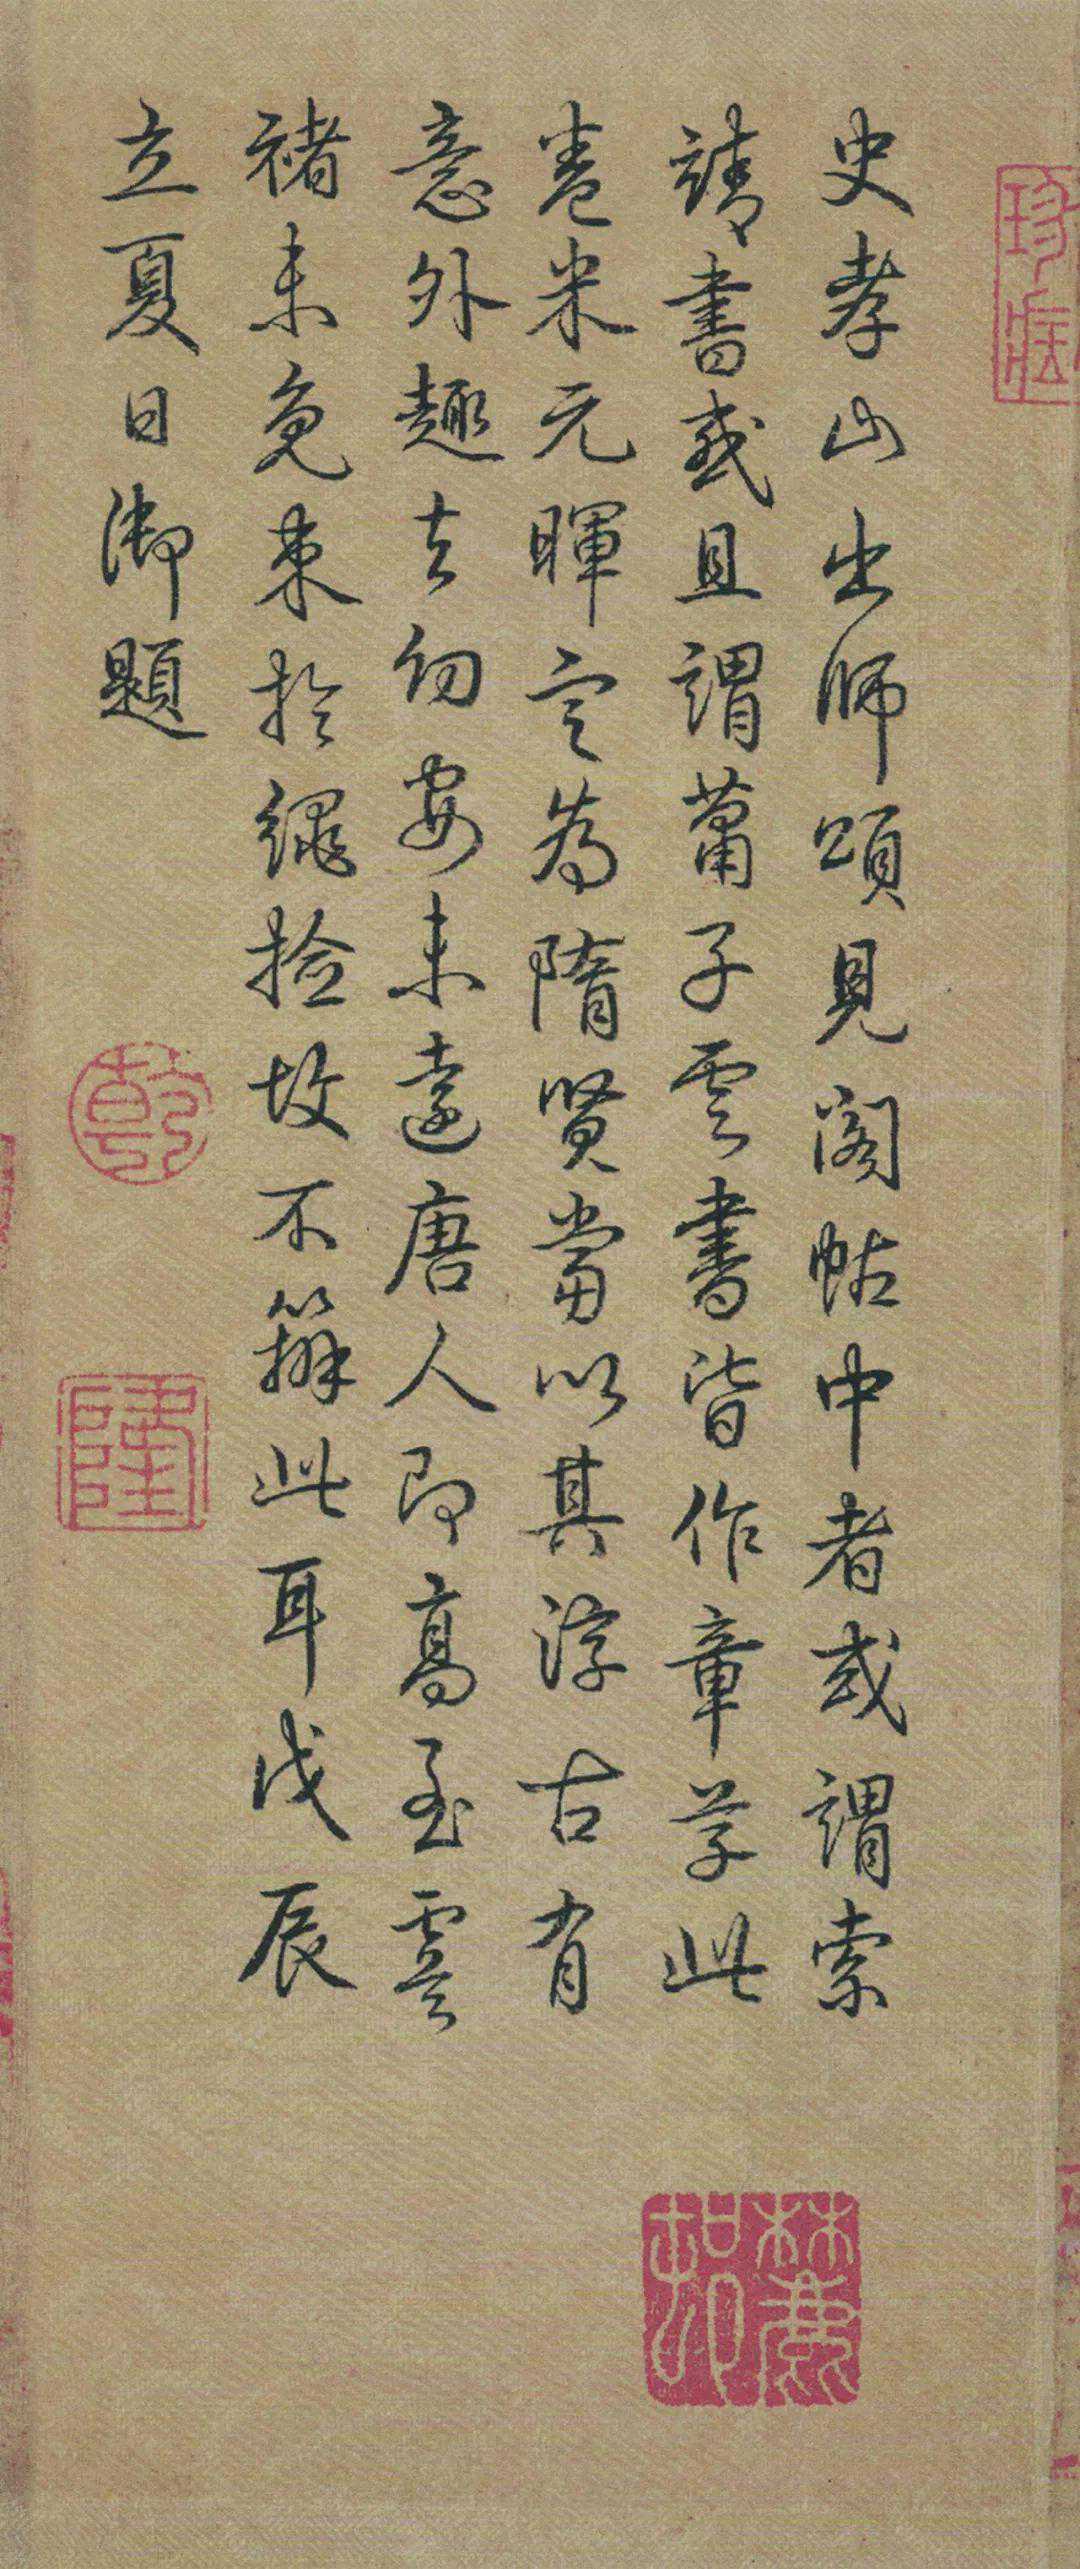 史孝山出师頌見閣帖中者或謂索
靖書或且謂蕭子雲書皆作章草此
卷米元暉定為隋賢當以其淳古有
意外趣去幼安未遠唐人即高至虞
褚未免束於繩撿故不辦此耳戊辰
立夏日御題
乾
隆